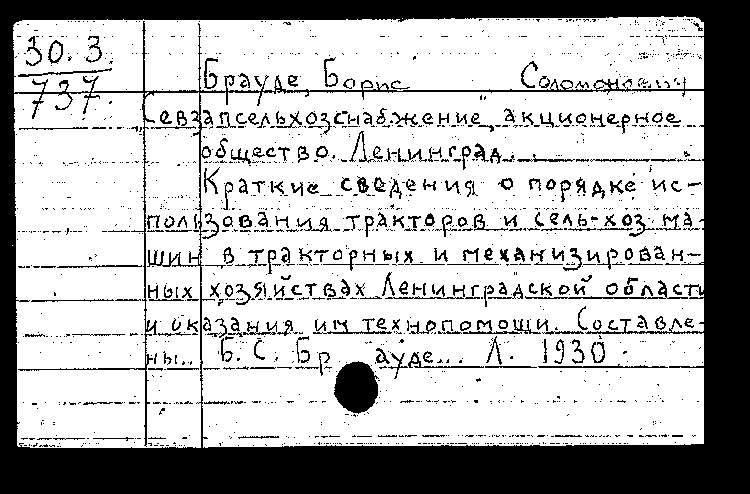 30.3
737.
Брауде, Борис Соломонович
"Севзапсельхозснабжение", акционерное
общество. Ленинград...
Краткие сведения о порядке ис-
пользования тракторов и сель-хоз ма-
шин в тракторных и механизирован-
ных хозяйствах Ленинградской области
и оказания им технопомощи. Составле-
ны.. Б. С. Бр ауде... Л. 1930.